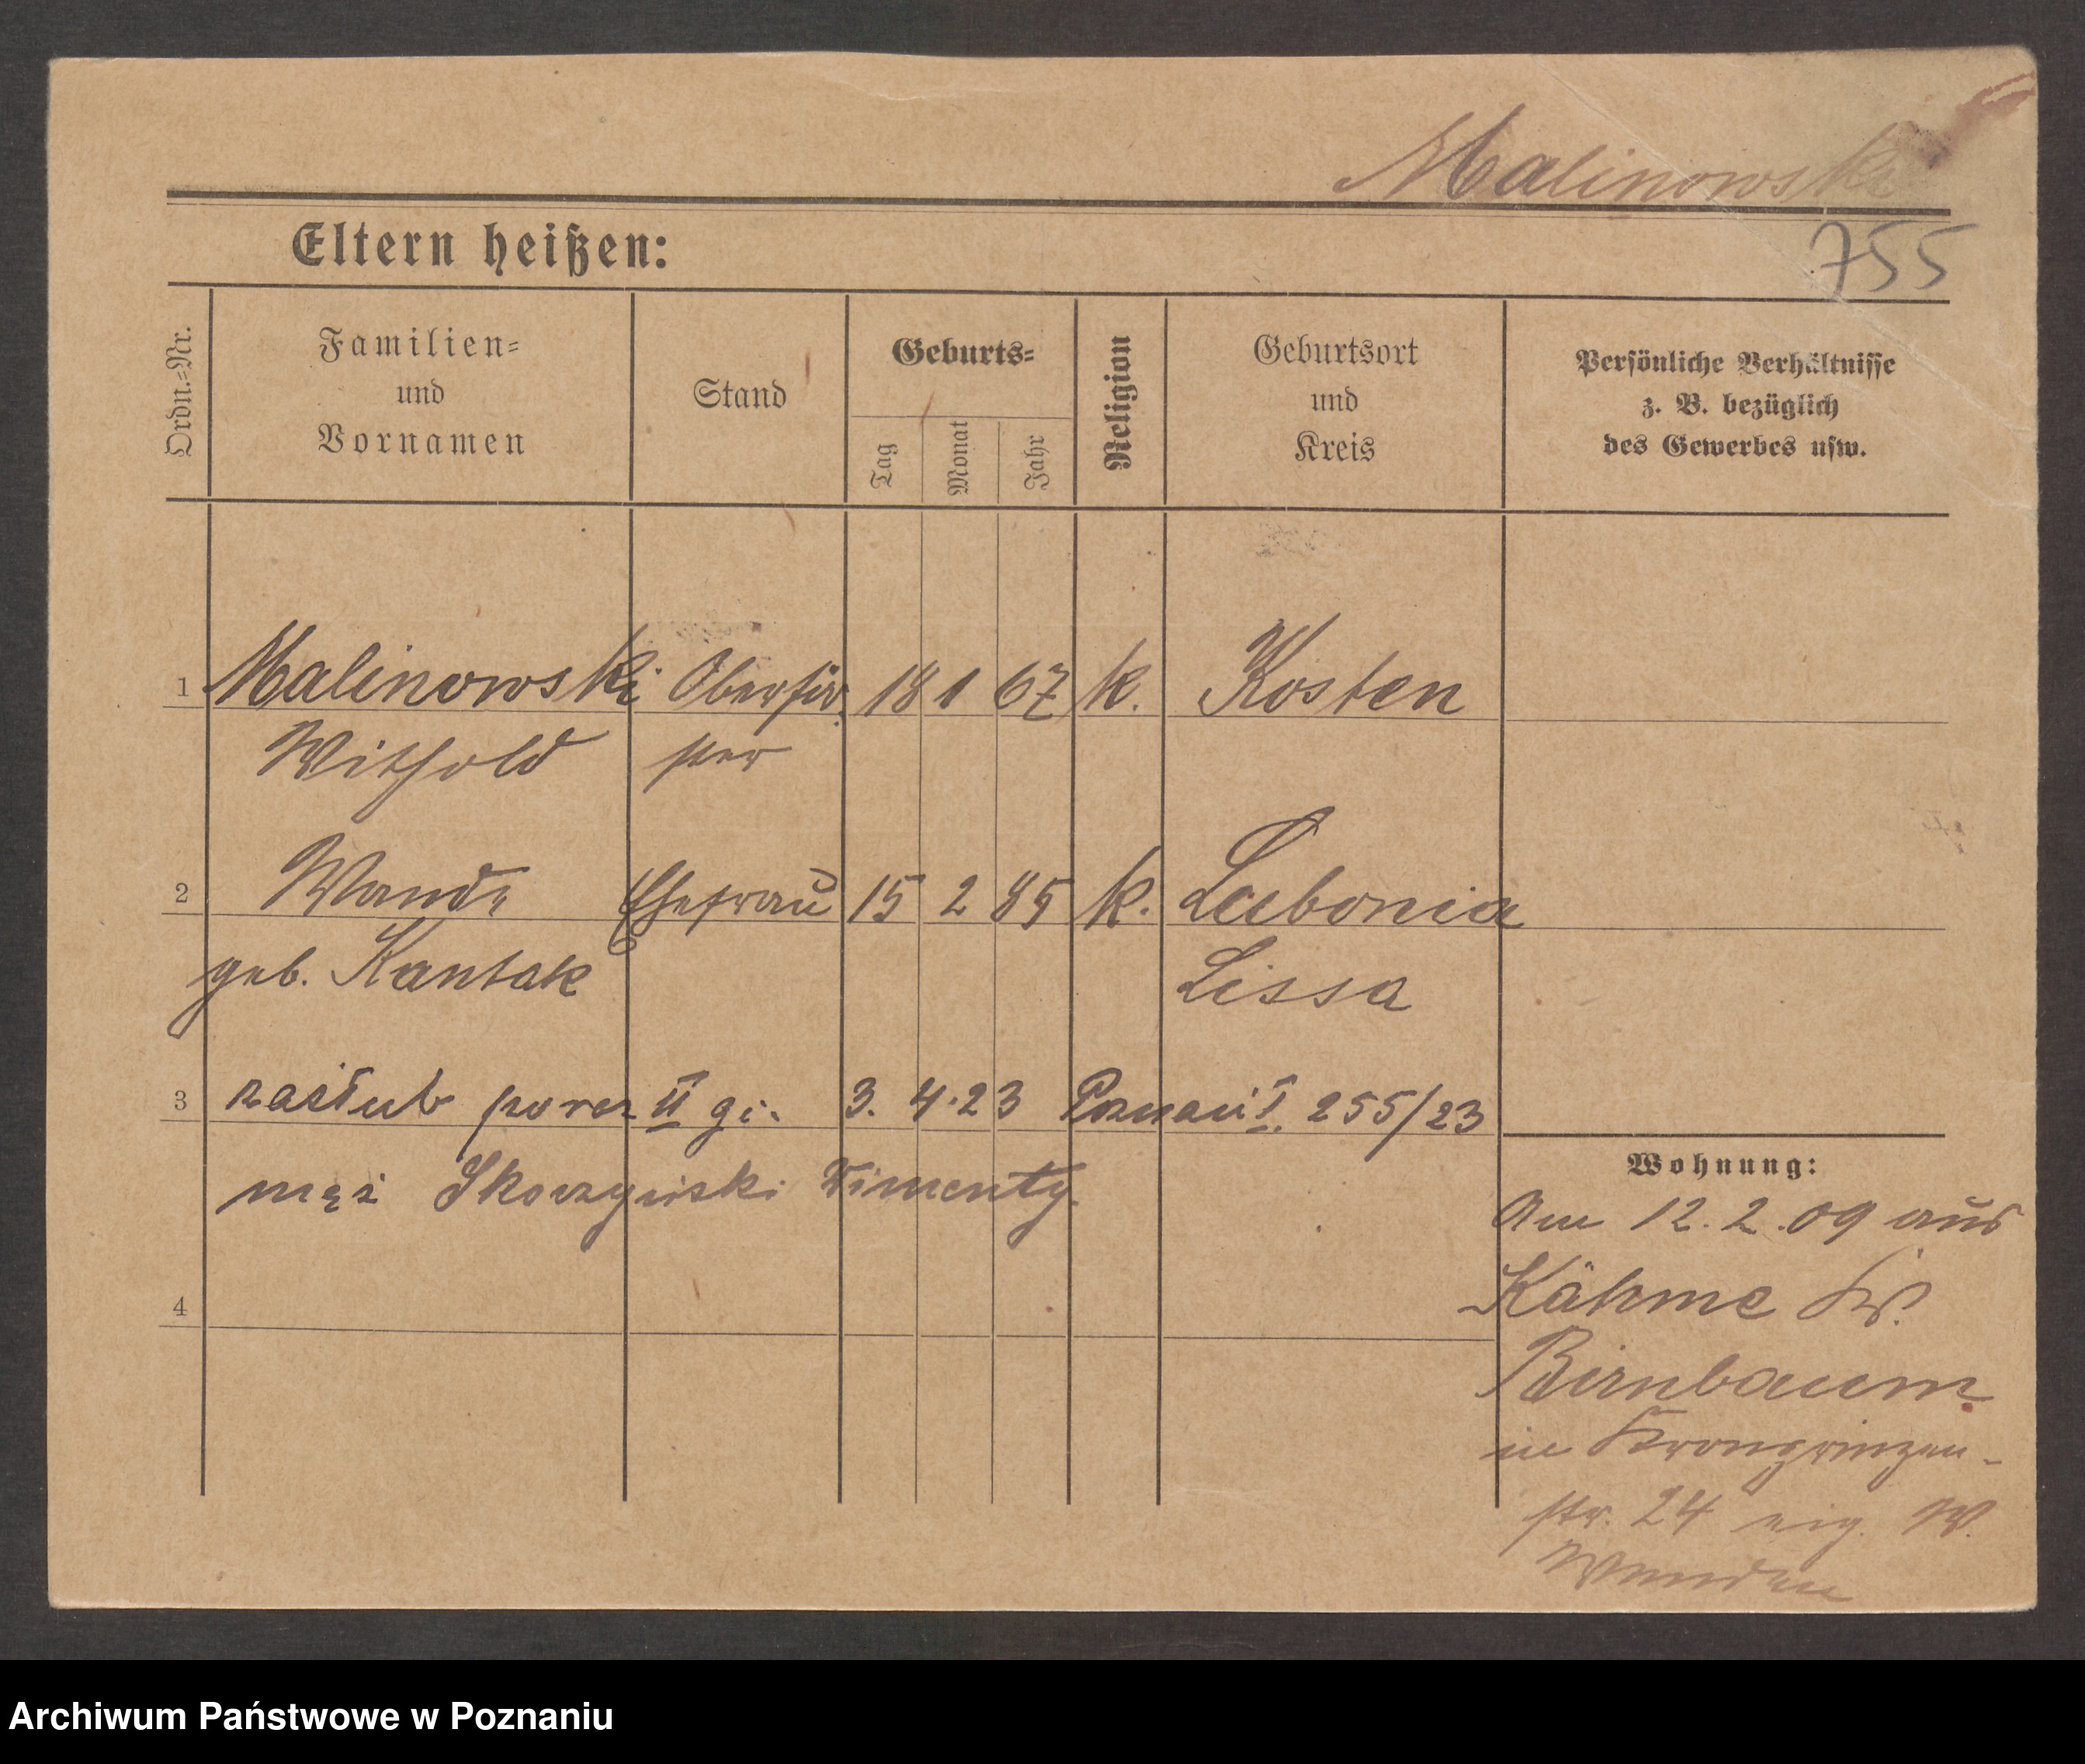 Malinowski
Eltern heißen:
755
Ordn.=Nr.
Familien=
und
Vornamen
Stand
Geburts=
Tag
Monat
Jahr
Religion
Geburtsort
und
Kreis
Persönliche Verhältnisse
z. B. bezüglich
des Gewerbes usw.
1 Malinowski Oberför 18 1 67 k. Kosten
Withold ster
2 Wanda Ehefrau 15 2 85 k. Lubonia
geb. Kantak Lissa
3 zaślub poraz II gi. 3. 4. 23 Poznań I. 255/23
mąż Skoczyński
Wohnung:
Am 12.2.09 aus
Kähme Kr.
Birnbaum
in Kronprinzen-
str. 24 eig. W.
4
Archiwum Państwowe w Poznaniu